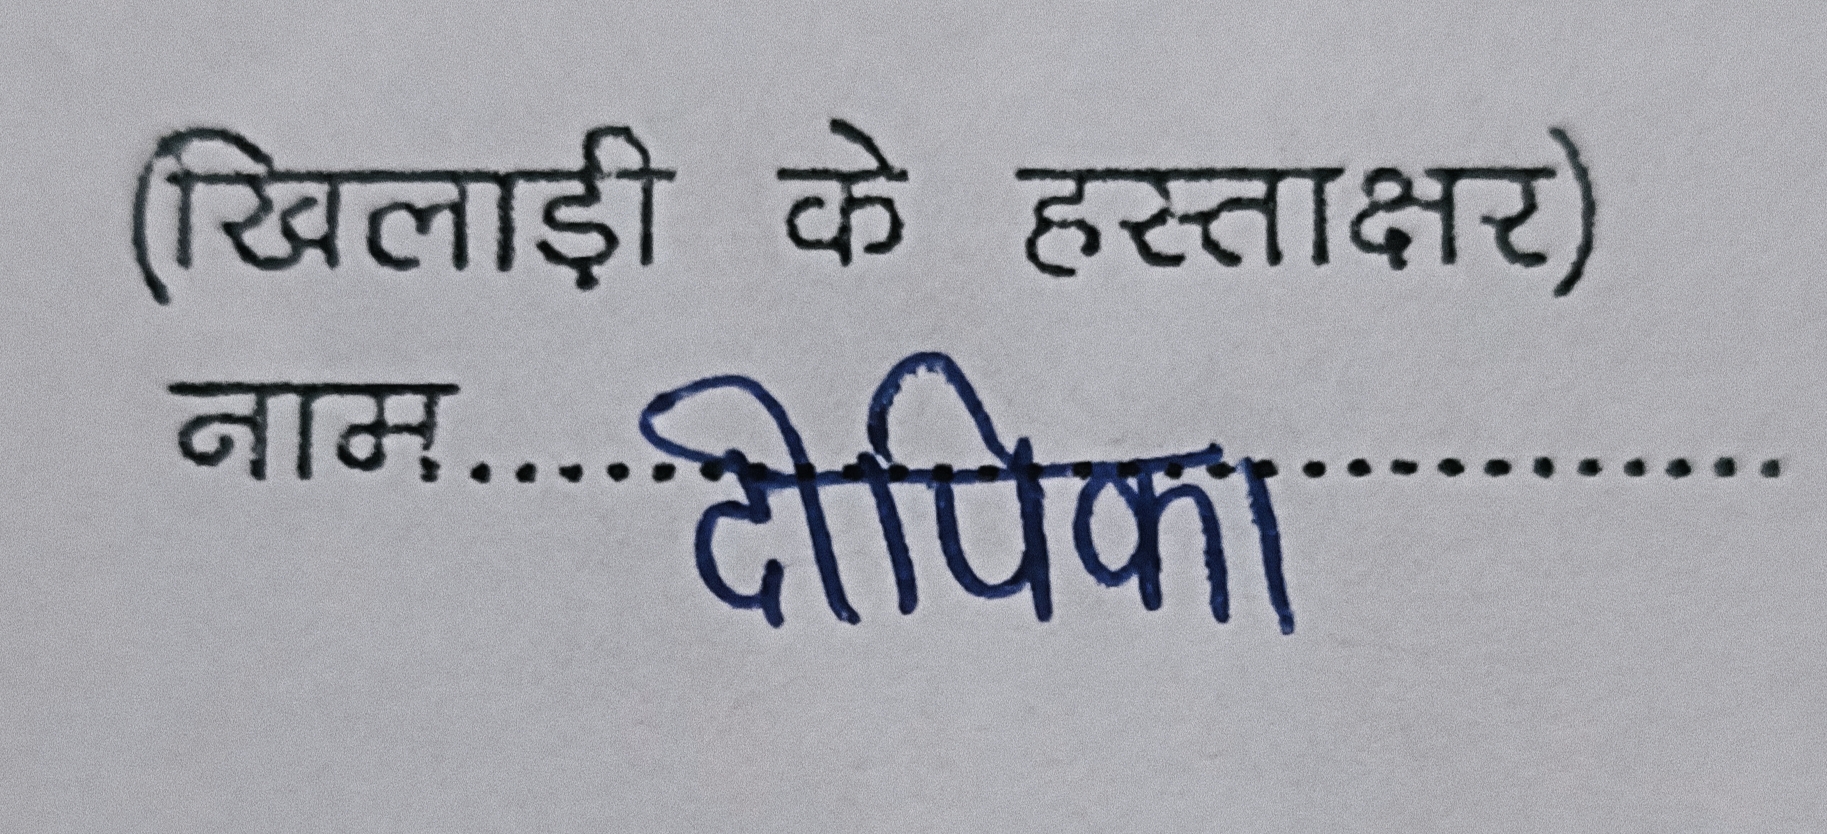 (खिलाड़ी के हस्ताक्षर)
नाम.......दीपिका...........